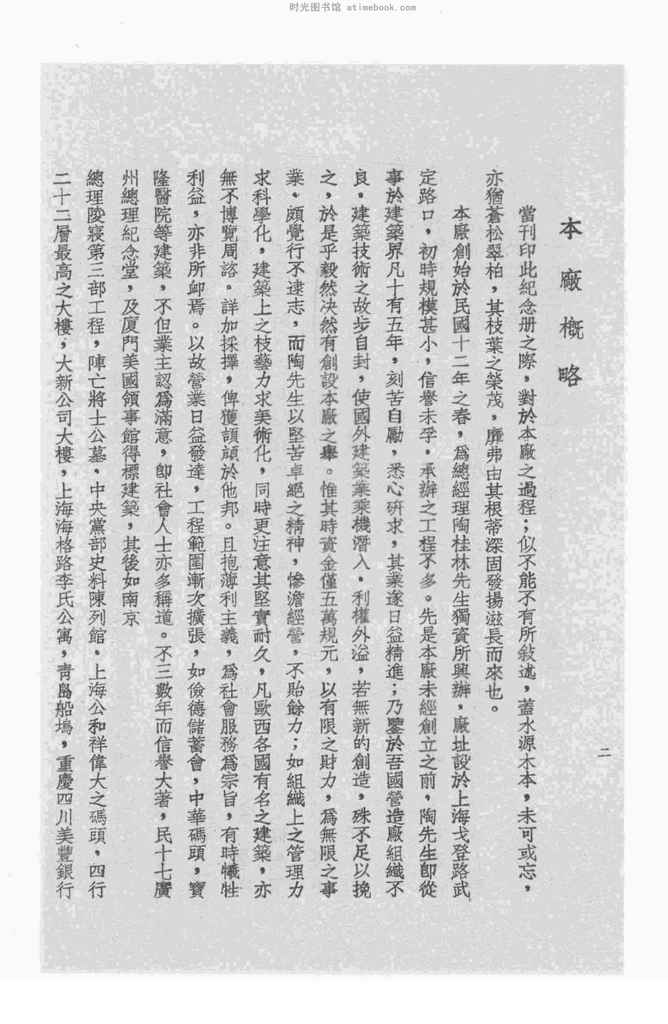 时光图书馆 atimebook.com
二
本廠概略
當刊印此紀念册之際，對於本廠之過程；似不能不有所敍述，蓋水源木本，未可或忘，
亦猶蒼松翠柏，其枝葉之榮茂，靡弗由其根蒂深固發揚滋長而來也。
本廠創始於民國十二年之春，爲總經理陶桂林先生獨資所興辦，廠址設於上海戈登路武
定路口，初時規模甚小，信譽未孚，承辦之工程不多。先是本廠未經創立之前，陶先生卽從
事於建築界凡十有五年，刻苦自勵，悉心研求，其業遂日益精進；乃鑒於吾國營造廠組織不
良，建築技術之故步自封，使國外建築業乘機潛入，利權外溢，若無新的創造，殊不足以挽
之，於是乎毅然决然有創設本廠之舉。惟其時資金僅五萬規元，以有限之財力，爲無限之事
業、頗覺行不逮志，而陶先生以堅苦卓絕之精神，慘澹經營，不貽餘力；如組織上之管理力
求科學化，建築上之枝藝力求美術化，同時更注意其堅實耐久，凡歐西各國有名之建築，亦
無不博覽周諮。詳加採擇，俾獲頡頏於他邦。且抱薄利主義，爲社會服務爲宗旨，有時犧牲
利益，亦非所卹焉。以故營業日益發達，工程範圍漸次擴張，如儉德儲蓄會，中華碼頭，寶
隆醫院等建築，不但業主認爲滿意，卽社會人士亦多稱道。不三數年而信譽大著，民十七廣
州總理紀念堂，及廈門美國領事館得標建築，其後如南京
總理陵寢第三部工程，陣亡將士公墓、中央黨部史料陳列館、上海公和祥偉大之碼頭，四行
二十二層最高之大樓，大新公司大樓，上海海格路李氏公寓，靑島船塢，重慶四川美豐銀行